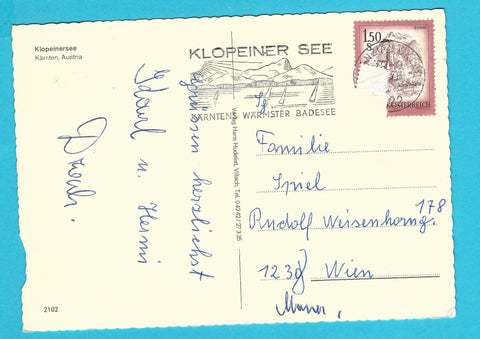 Klopeinersee
Kärnten, Austria
KLOPEINER SEE
KÄRNTENS WÄRMSTER BADESEE
1.50
S
ÖSTERREICH
grüssen herzlichst
u. Hermi
Verlag Hans Hudelist, Villach, Tel.
Familie
Spiel
Rudolf Weisenhorng. 178
1230 Wien
Mauer.
2102